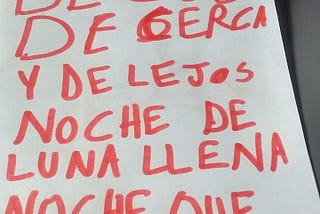 DE
DE CERCA
Y DE LEJOS
NOCHE DE
LUNA LLENA
NOCHE QUE